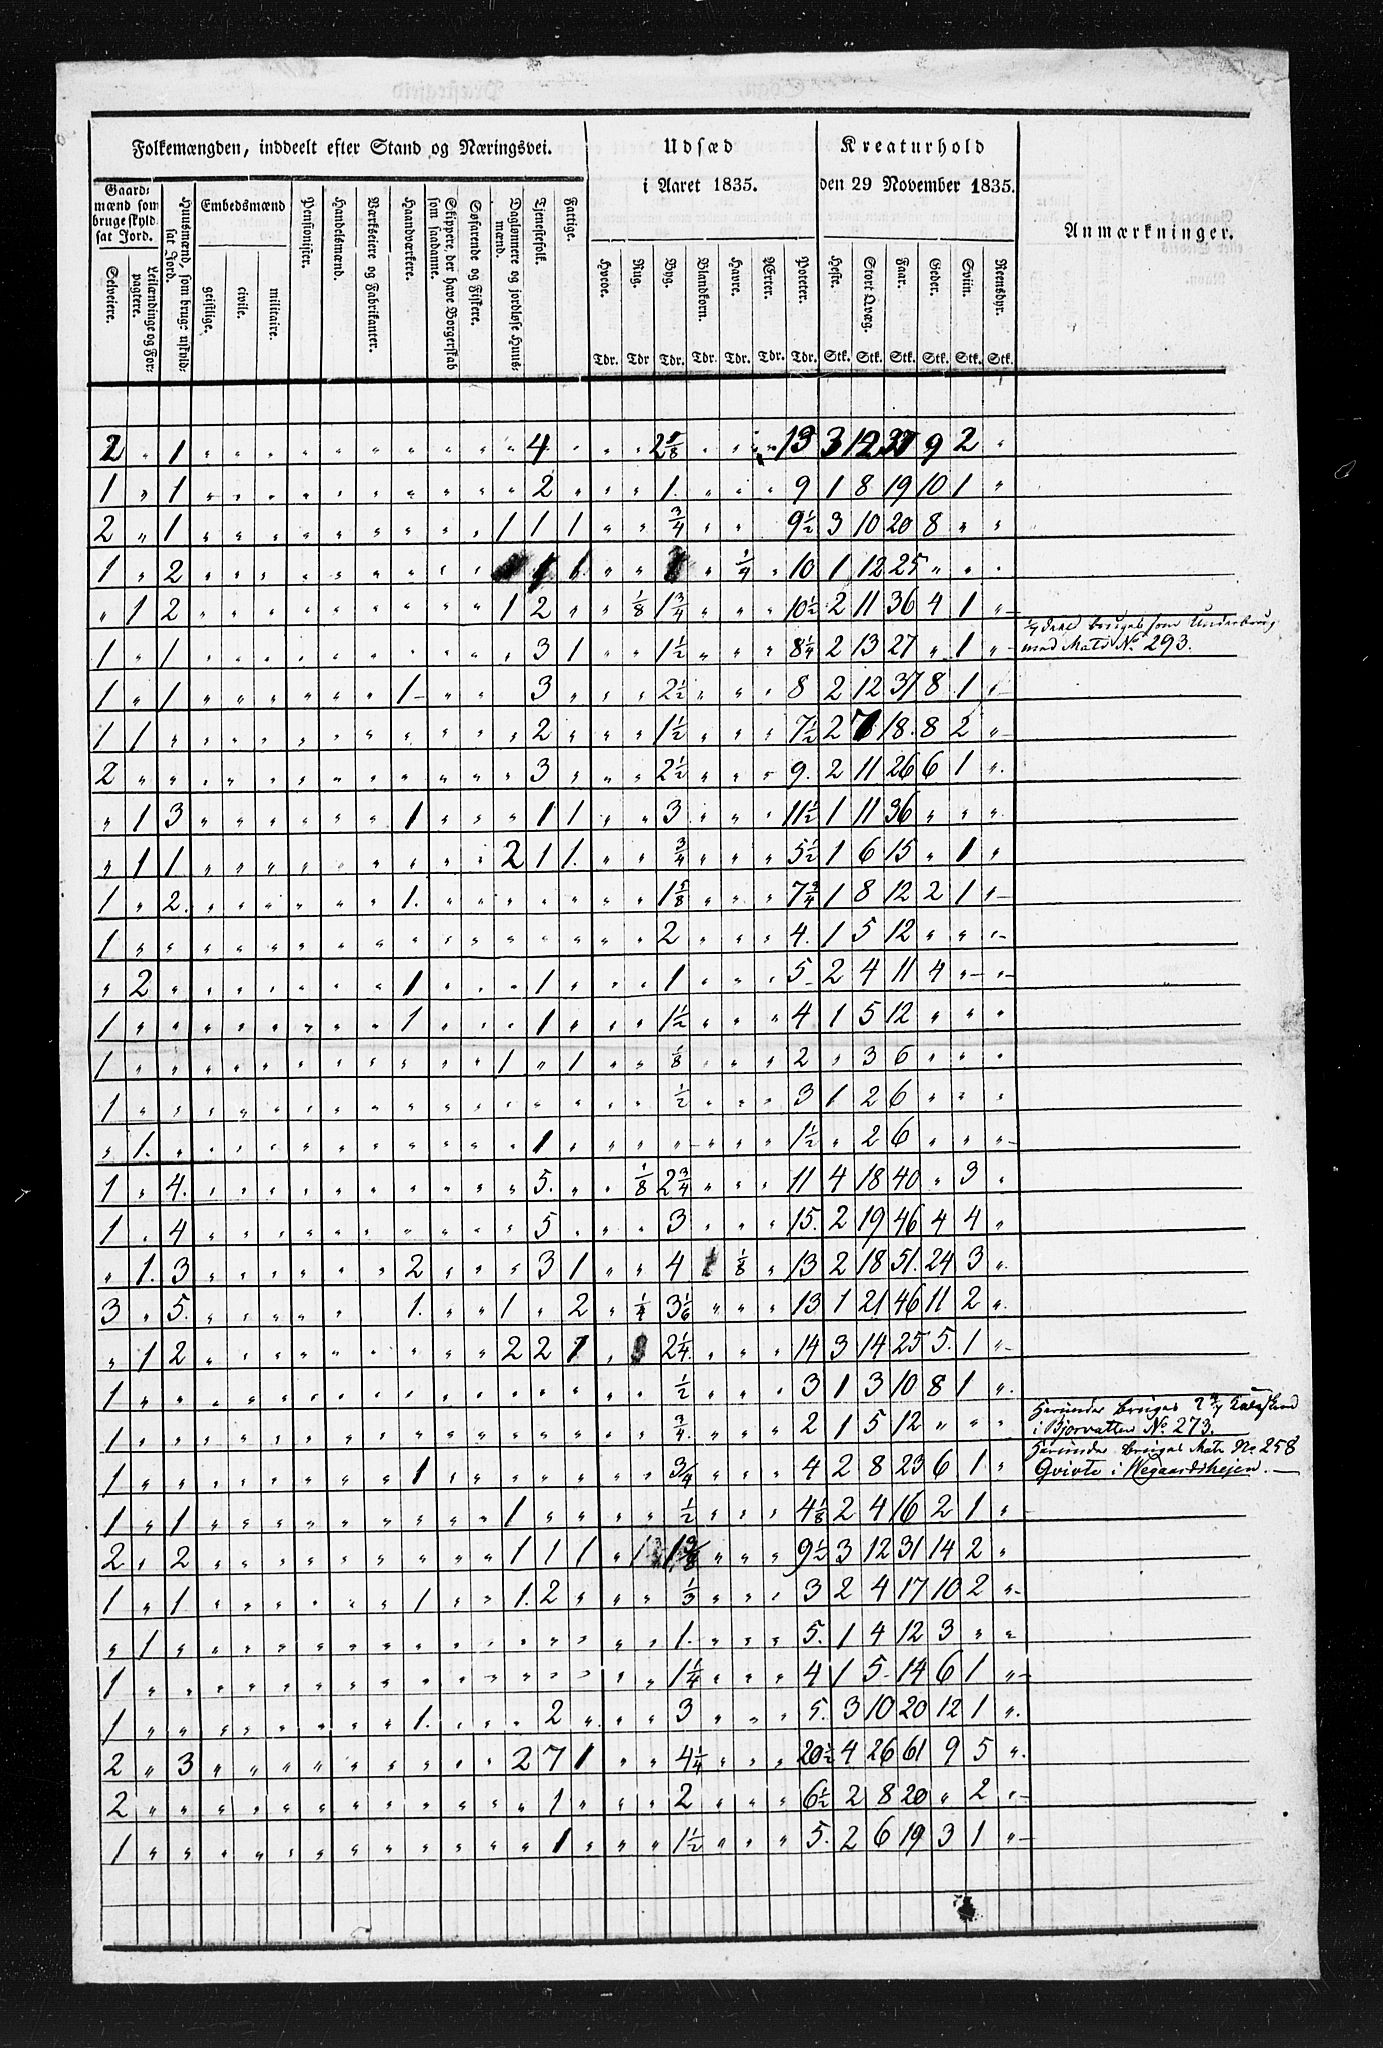 Folkemængden, inddeelt efter Stand og Næringsvei.
Udsæd
i Aaret 1835.
Kreaturhold
den 29 November 1835.
Anmærkninger.
Gaard-
mænd som
bruge skyld-
sat Jord.
Selveiere.
Leilændinge og For-
pagtere.
Huusmænd, som bruge uskyld-
sat Jord.
Embedsmænd
geistlige.
civile.
militaire.
Pensionister.
Handelsmænd.
Værkseiere og Fabrikanter.
Haandværkere.
Skippere, der have Borgerskab
som saadanne.
Søfarende og Fiskere.
Daglønnere og jordløse Huus-
mænd.
Tjenestefolk.
Fattige.
Hvede.
Rug.
Byg.
Blandkorn.
Havre.
Ærter.
Poteter.
Heste.
Stort Qvæg.
Faar.
Geder.
Sviin.
Reensdyr.
Tdr. Tdr Tdr. Tdr. Tdr. Tdr. Tdr. Stk. Stk. Stk. Stk. Stk. Stk.
2 „ 1 „ „ „ „ „ „ „ „ „ „ 4 „ „ „ 2⅝ „ „ „ 13 3 12 37 9 2 „
1 „ 1 „ „ „ „ „ „ „ „ „ „ 2 „ „ „ 1. „ „ „ 9 1 8 19 10 1 „
2 „ 1 „ „ „ „ „ „ „ „ „ 1 1 1 „ „ ¾ „ „ 9½ 3 10 20 8 „ „
1 „ 2 „ „ „ „ „ „ „ „ „ 1 1. „ „ 1 „ ¼ „ 10 1 12 25 „ „ „
„ 1 2 „ „ „ „ „ „ „ „ „ 1 2 „ „ ⅛ 1¾ „ „ „ 10½ 2 11 36 4 1 „
1 „ 1 „ „ „ „ „ „ „ „ „ „ 3 1 „ „ 1½ „ „ „ 8¼ 2 13 27 „ 1 „ ¼ Deel bruges som Underbrug
med Matr No 293.
1 „ 1 „ „ „ „ „ „ 1 „ „ „ 3 „ „ „ 2½ „ „ „ 8 2 12 37 8 1 „
1 1 „ „ „ „ „ „ „ „ „ „ „ 2 „ „ „ 1½ „ „ „ 7½ 2 7 18. 8 2 „
2 „ „ „ „ „ „ „ „ „ „ „ „ 3 „ „ „ 2½ „ „ „ 9. 2 11 26 6 1 „
„ 1 3 „ „ „ „ „ „ 1 „ „ „ 1 1 „ „ 3 „ „ „ 11½ 1 11 36 „ „ „
„ 1 1. „ „ „ „ „ „ „ „ „ 2 1 1. „ „ ¾ „ „ „ 5½ 1 6 15 „ 1 „
1 „ 2. „ „ „ „ „ „ 1. „ „ „ „ „ „ „ 1⅝ „ „ „ 7¾ 1 8 12 2 1 „
1 „ „ „ „ „ „ „ „ „ „ „ „ „ „ „ „ 2 „ „ „ 4. 1 5 12 „ „ „
„ 2 „ „ „ „ „ „ „ 1 „ „ „ 1 „ „ „ 1 „ „ „ 5 2 4 11 4 „ „
1 „ „ „ „ „ „ „ „ 1 „ „ „ 1 „ „ „ 1½ „ „ „ 4 1 5 12 „ „ „
1 „ „ „ „ „ „ „ „ „ „ „ 1 „ 1 „ „ ⅛ „ „ „ 2 „ 3 6 „ „ „
1 „ „ „ „ „ „ „ „ „ „ „ „ „ „ „ „ ½ „ „ „ 3 1 2 6 „ „ „
„ 1. „ „ „ „ „ „ „ „ „ „ „ 1 „ „ „ „ „ „ „ 1½ „ 2 6 „ „ „
1 „ 4. „ „ „ „ „ „ „ „ „ „ 5. „ „ ⅛ 2¾ „ „ „ 11 4 18 40 „ 3 „
1 „ 4 „ „ „ „ „ „ „ „ „ „ 5 „ „ „ 3 „ „ „ 15. 2 19 46 4 4 „
„ 1. 3 „ „ „ „ „ „ 2 „ „ „ 3 1 „ „ 4 ⅛ „ 13 2 18 51. 24 3 „
3 „ 5. „ „ „ „ „ „ 1. „ „ 1 „ 2 „ ¼ 3⅙ „ „ „ 13 1 21 46 11 2 „
„ 1 2 „ „ „ „ „ „ „ „ „ 2 2 1 „ 2¼ „ „ „ 14 3 14 25 5. 1 „
1 „ „ „ „ „ „ „ „ „ „ „ „ „ „ „ „ ½ „ „ „ 3 1 3 10 8 1 „
1 „ „ „ „ „ „ „ „ „ „ „ „ „ „ „ „ ¾ „ „ „ 2 1 5 12 „ „ „ Herunder bruges
i Bjorvatten No 273.
1 „ „ „ „ „ „ „ „ 1 „ „ „ „ „ „ „ ¾ „ „ „ 4 2 8 23 6 1 „ Herunder bruges Matr No 258
Qvivte i Wegaardshejen.
1 „ 1 „ „ „ „ „ „ „ „ „ 1 „ „ „ „ ½ „ „ „ 4⅛ 2 4 16 2 1 „
2 „ 2 „ „ „ „ „ „ „ „ „ 1 1 1 „ 1⅜ „ „ „ 9½ 3 12 31 14 2 „
1 „ 1 „ „ „ „ „ „ 1 „ „ 1. 2 „ „ „ ⅓ „ „ „ 3 2 4 17 10 2 „
„ 1 „ „ „ „ „ „ „ „ „ „ „ „ „ „ „ 1. „ „ „ 5. 1 4 12 3 „ „
1 „ „ „ „ „ „ „ „ „ „ „ „ „ „ „ „ 1¼ „ „ „ 4 1 5 14 6 1 „
1 „ „ „ „ „ „ „ „ 1. „ „ „ 2 „ „ „ 3 „ „ „ 5. 3 10 20 12 1 „
2 „ 3 „ „ „ „ „ „ „ „ „ 2 7 1 „ „ 4¼ „ „ „ 20½ 4 26 61 9 5 „
2 „ „ „ „ „ „ „ „ „ „ „ „ 1 „ „ „ 2 „ „ „ 6½ 2 8 20 „ 2 „
1 „ „ „ „ „ „ „ „ „ „ „ „ 1 „ „ „ 1½ „ „ „ 5. 2 6 19 3 1 „